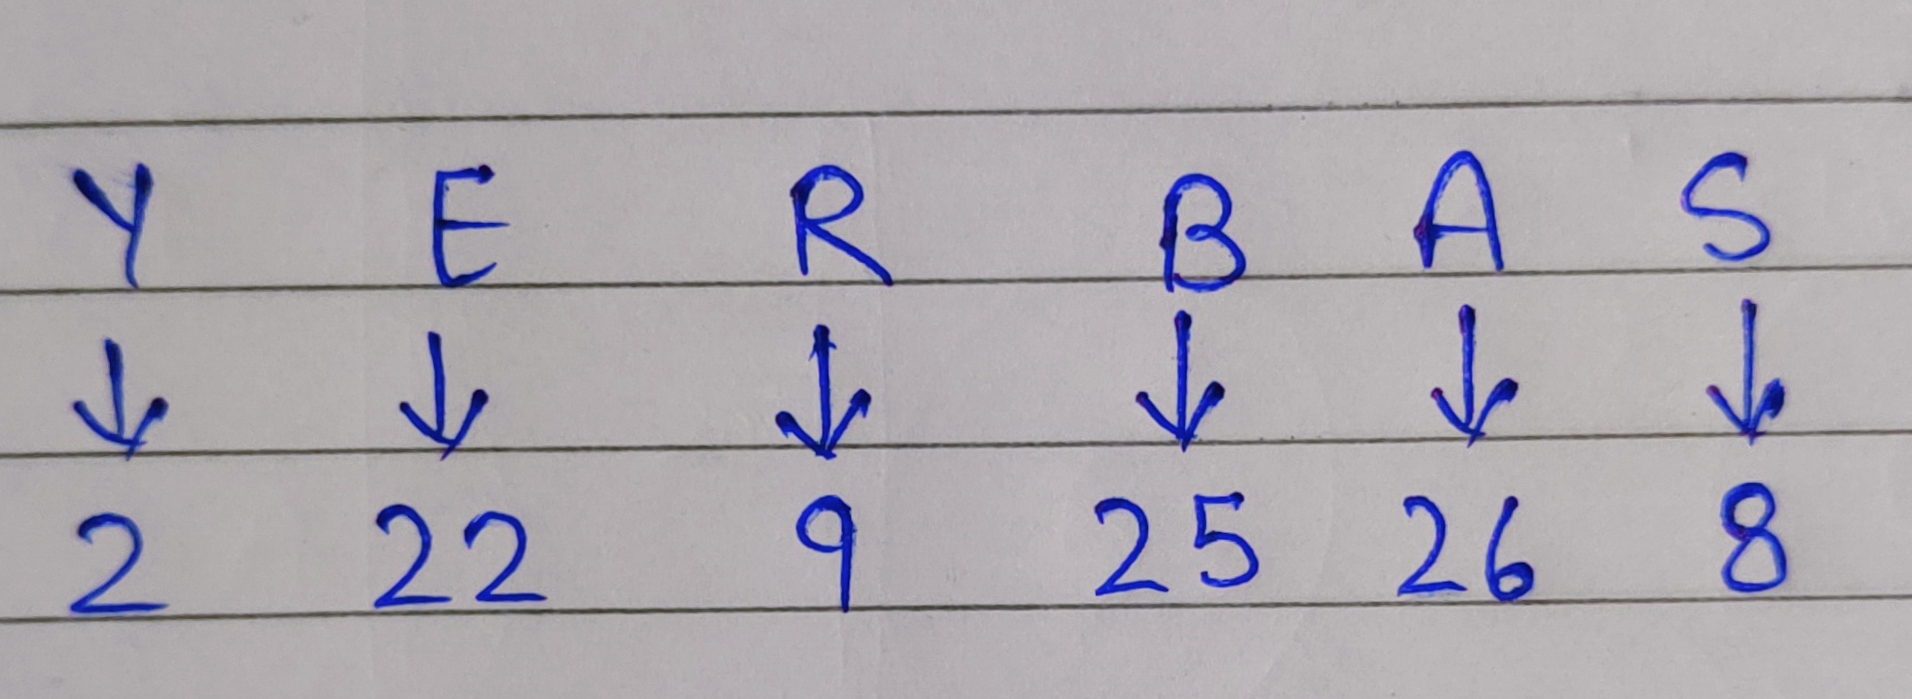 Y E R B A S
↓ ↓ ↓ ↓ ↓ ↓
2 22 9 25 26 8